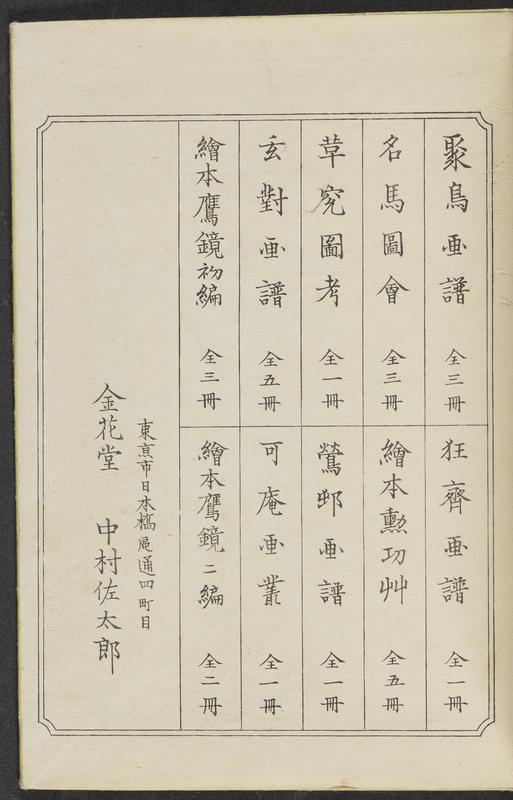 聚鳥画譜 全三冊
狂齊画譜 全一冊
名馬圖會 全三冊
繪本勲功艸 全五冊
草究圖考 全一冊
鶯邨画譜 全一冊
玄對画譜 全五冊
可庵画叢 全一冊
繪本鷹鏡初編 全三冊
繪本鷹鏡二編 全二冊
東亰市日本橋區通四町目
金花堂 中村佐太郎